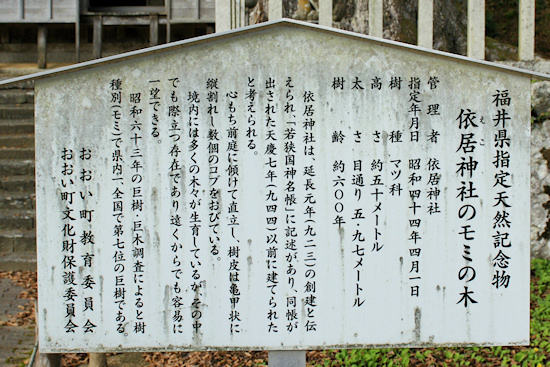 福井県指定天然記念物
えこ
依居神社のモミの木
管理者 依居神社
指定年月日 昭和四十四年四月一日
樹種 マツ科
高さ 約五十メートル
太さ 目通り 五・九七メートル
樹齢 約六〇〇年
依居神社は、延長元年(九二三)の創建と伝
えられ「若狭国神名帳」に記述があり、同帳が
出された天慶七年(九四四)以前に建てられた
と考えられる。
心もち前庭に傾けて直立し、樹皮は亀甲状に
縦割れし数個のコブをおびている。
境内には多くの木々が生育しているが、その中
でも際立つ存在であり遠くからでも容易に
一望できる。
昭和六十三年の巨樹・巨木調査によると樹
種別(モミ)で県内一、全国で第七位の巨樹である。
おおい町教育委員会
おおい町文化財保護委員会